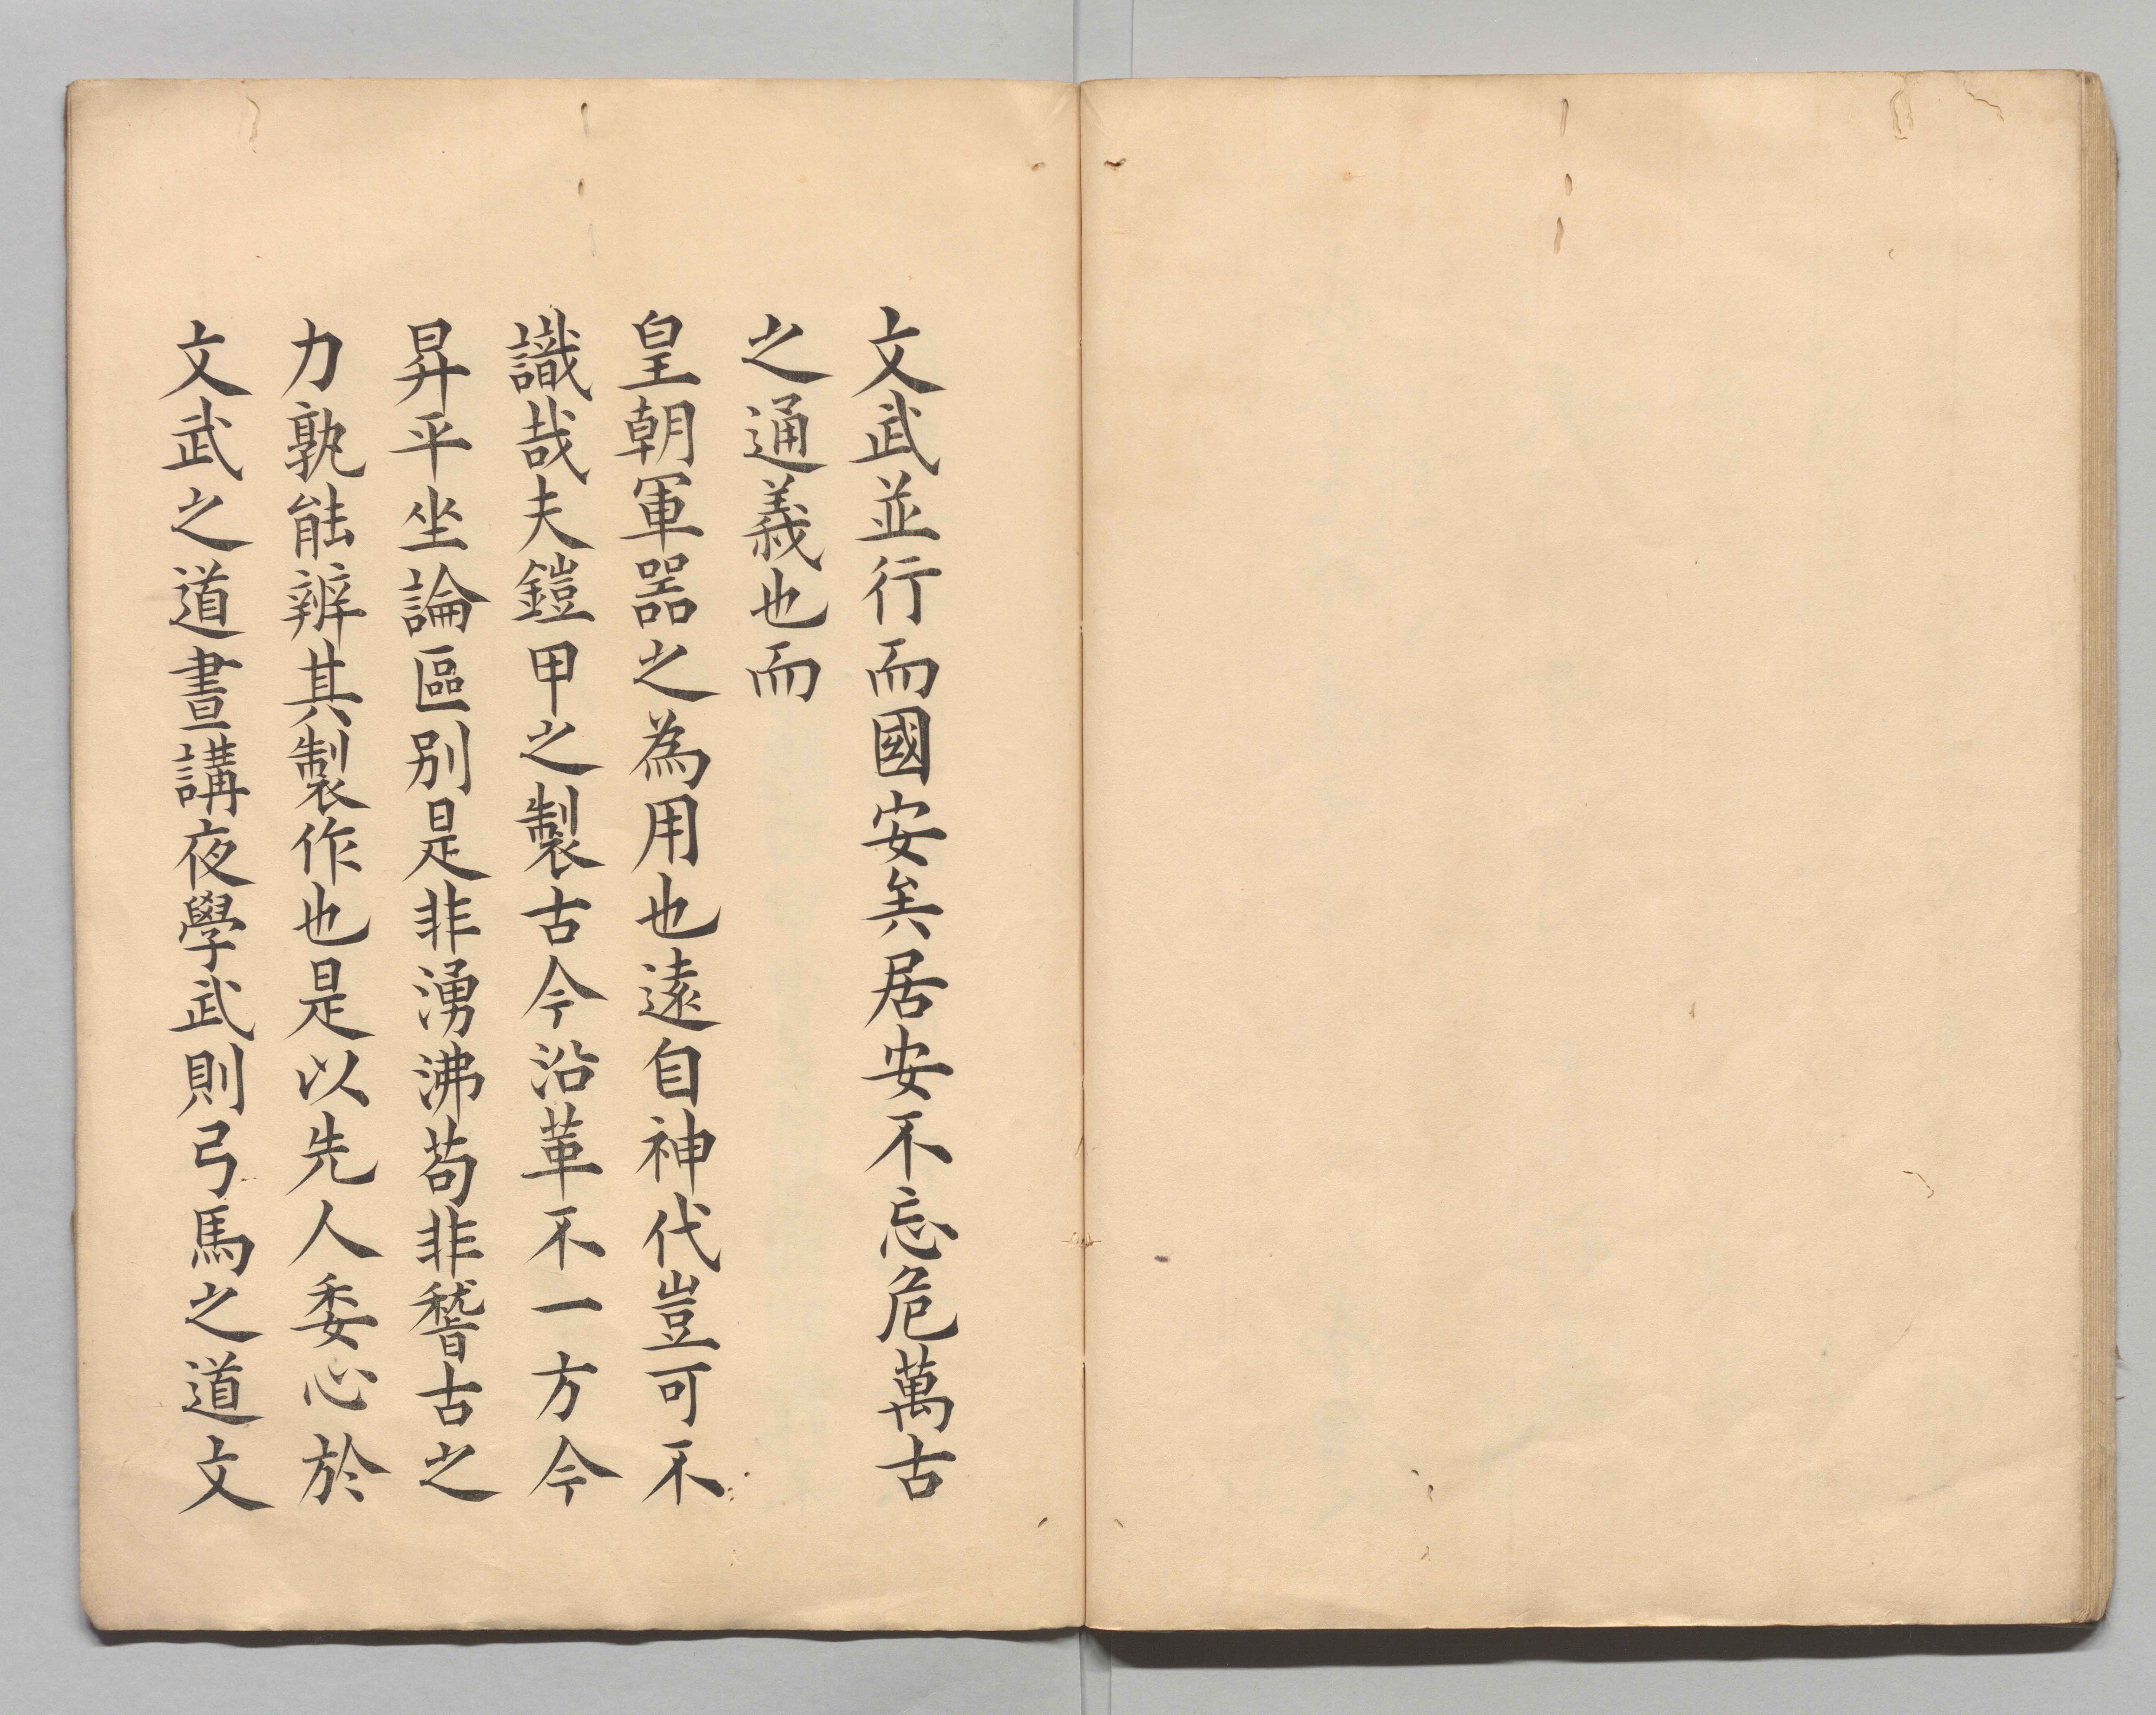 文武並行而國安矣居安不忘危萬古
之通義也而
皇朝軍器之為用也遠自神代豈可不
識哉夫鎧甲之製古今沿革不一方今
昇平坐論區别是非湧沸苟非稽古之
力孰能辨其製作也是以先人委心於
文武之道晝講夜學武則弓馬之道文